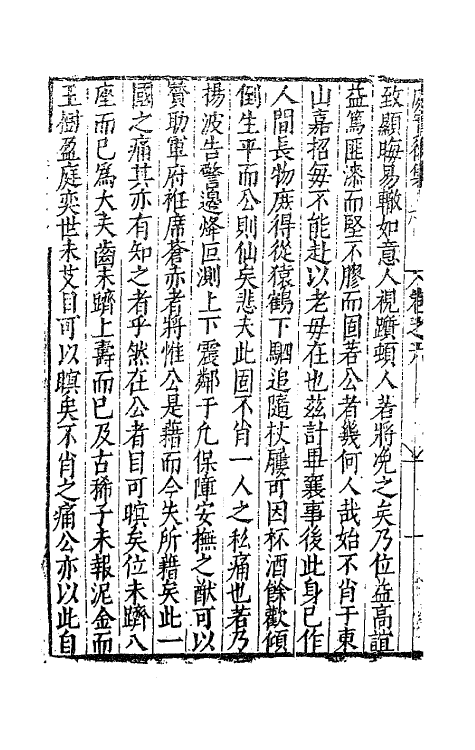 處實後集 卷之六
致顯晦易轍如意人視躓頓人若將凂之矣乃位益高誼
益篤匪漆而堅不膠而固若公者幾何人哉始不肖于東
山嘉招每不能赴以老母在也茲計畢襄事後此身已作
人間長物庶得從猿鶴下駟追隨杖屨可因杯酒餘歡傾
倒生平而公則仙矣悲夫此固不肖一人之私痛也若乃
揚波告警邊烽叵測上下震鄰于允保障安撫之猷可以
贊助軍府袵席蒼赤者將惟公是藉而今失所藉矣此一
國之痛其亦有知之者乎然在公者目可暝矣位未躋八
座而已為大夫齒未躋上壽而已及古稀子未報泥金而
玉樹盈庭奕世未艾目可以暝矣不肖之痛公亦以此自